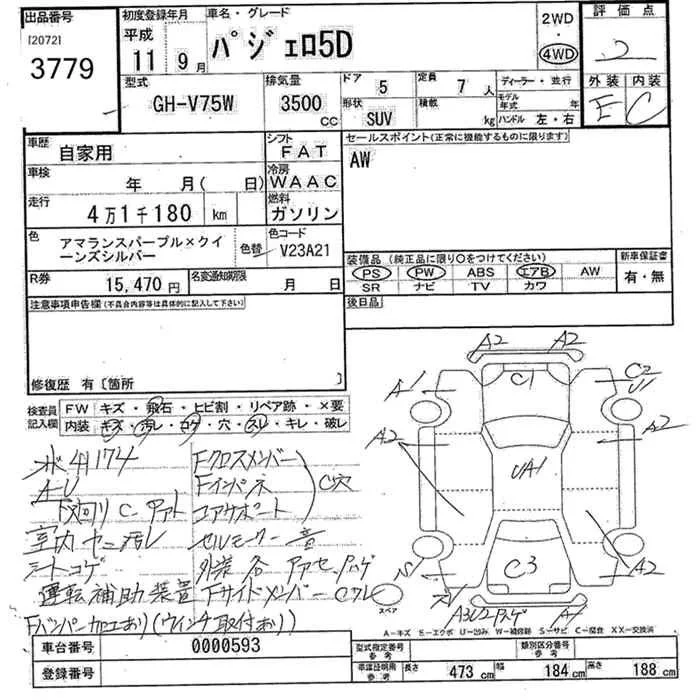 出品番号
[2072]
3779
初度登録年月
平成
11 9月
車名・グレード
パジェロ5D
2WD
4WD
評価点
2
外装 内装
E C
型式
GH-V75W
排気量
3500 CC
ドア 5
形状 SUV
定員 7 人
積載 kg
ディーラー・並行
モデル年式 年
ハンドル 左・右
車歴
自家用
シフト
FAT
セールスポイント(正常に機能するものに限ります)
AW
車検
年 月( 日)
冷房
WAAC
走行
4万1千180 km
燃料
ガソリン
色
アマランスパープル×クイーンズシルバー
色替
色コード
V23A21
装備品(純正品に限り○をつけてください)
PS PW ABS エアB AW
SR ナビ TV カワ
新車保証書
有・無
R券
15,470円
名変通知期限
月 日
後日品
注意事項申告欄(不具合内容等は具体的に記入して下さい)
修復歴 有〔箇所 〕
検査員記入欄
FW キズ・飛石・ヒビ割・リペア跡・×要
内装 キズ・汚レ・コゲ・穴・スレ・キレ・破レ
A2 A2
C1
A1
C2
U1
A2
A2
UA1
C3
A2
A1
スペア
Fクロスメンバー
Fインパネ
コアサポート
C穴
セルモーター 音
室内ヤニ汚レ
シートコゲ
運転補助装置
Fサイドメンバー
Fバンパー加工あり(ウインチ取付あり)
A-キズ E-エクボ U-凹み W-補修跡 S-サビ C-腐食 XX-交換済
車台番号
0000593
登録番号
型式指定番号
参考
類別区分番号
参考
車庫証明用
参考
長さ 473 cm
幅 184 cm
高さ 188 cm